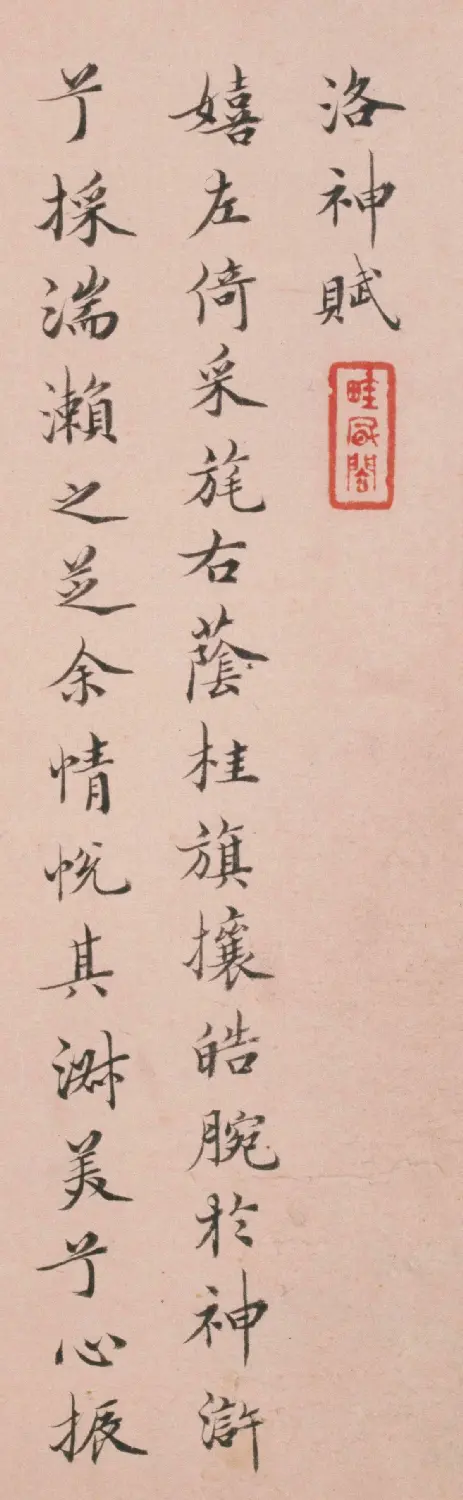 洛神賦
嬉左倚采旄右蔭桂旗攘皓腕於神滸
兮採湍瀨之芝余情悅其淑美兮心振